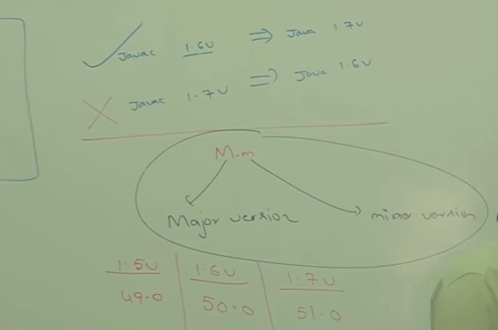 Javac 1.6V ⇒ Java 1.7V
Javac 1.7V ⇒ Java 1.6V
M.m
Major version minor version
1.5V 1.6V 1.7V
49.0 50.0 51.0